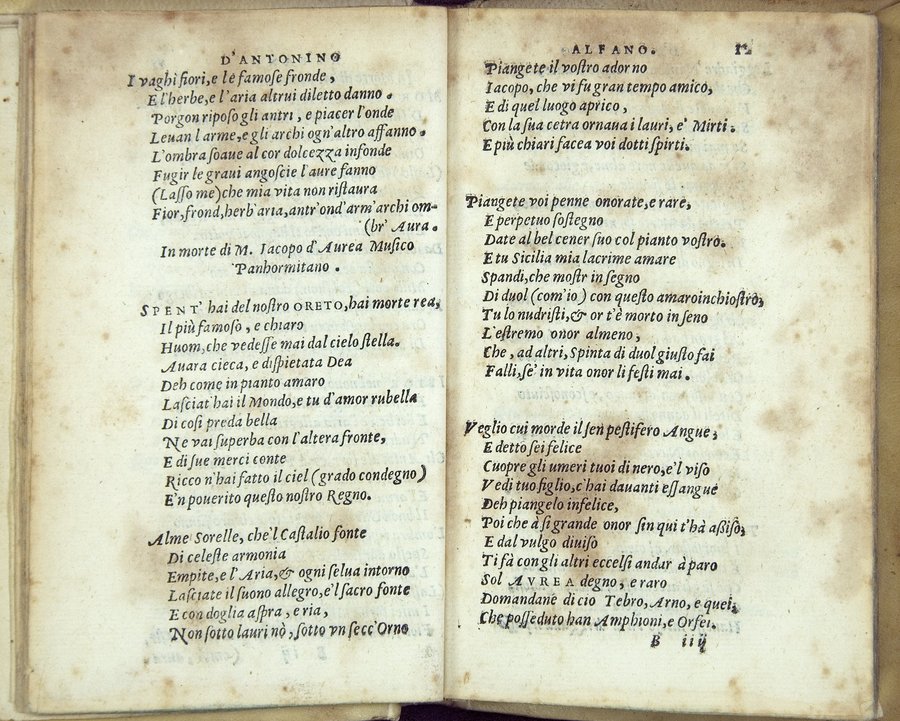 D'ANTONINO
I vaghi fiori, e le famose fronde,
E l'herbe, e l'aria altrui diletto danno.
Porgon riposo gli antri, e piacer l'onde
Leuan l'arme, e gli archi ogn'altro affanno.
L'ombra soaue al cor dolcezza infonde
Fugir le graui angoscie l'aure fanno
(Lasso me) che mia vita non ristaura
Fior, frond, herb'aria, antr'ond'arm'archi om-
(br' Aura.
In morte di M. Iacopo d'Aurea Musico
Panhormitano.
SPENT' hai del nostro ORETO, hai morte rea,
Il più famoso, e chiaro
Huom, che vedesse mai dal cielo stella.
Auara cieca, e dispietata Dea
Deh come in pianto amaro
Lasciat' hai il Mondo, e tu d'amor rubella
Di cosi preda bella
Ne vai superba con l'altera fronte,
E di sue merci conte
Ricco n'hai fatto il ciel (grado condegno)
E'n pouerito questo nostro Regno.
Alme Sorelle, che'l Castalio fonte
Di celeste armonia
Empite, e l'Aria, & ogni selua intorno
Lasciate il suono allegro, e'l sacro fonte
E con doglia aspra, e ria,
Non sotto lauri nò, sotto vn secc'Orno
ALFANO. 12
Piangete il vostro adorno
Iacopo, che vi fu gran tempo amico,
E di quel luogo aprico,
Con la sua cetra ornaua i lauri, e' Mirti.
E più chiari facea voi dotti spirti.
Piangete voi penne onorate, e rare,
E perpetuo sostegno
Date al bel cener suo col pianto vostro.
E tu Sicilia mia lacrime amare
Spandi, che mostr in segno
Di duol (com'io) con questo amaro inchiostro,
Tu lo nudristi, & or t'è morto in seno
L'estremo onor almeno,
Che, ad altri, Spinta di duol giusto fai
Falli, se' in vita onor li festi mai.
Veglio cui morde il sen pestifero Angue,
E detto sei felice
Cuopre gli umeri tuoi di nero, e'l viso
Vedi tuo figlio, c'hai dauanti essangue
Deh piangelo infelice,
Poi che à si grande onor sin qui t'hà assiso,
E dal vulgo diuiso
Ti fà con gli altri eccelsi andar à paro
Sol AVREA degno, e raro
Domandane di cio Tebro, Arno, e quei,
Che posseduto han Amphioni, e Orfei.
B iij